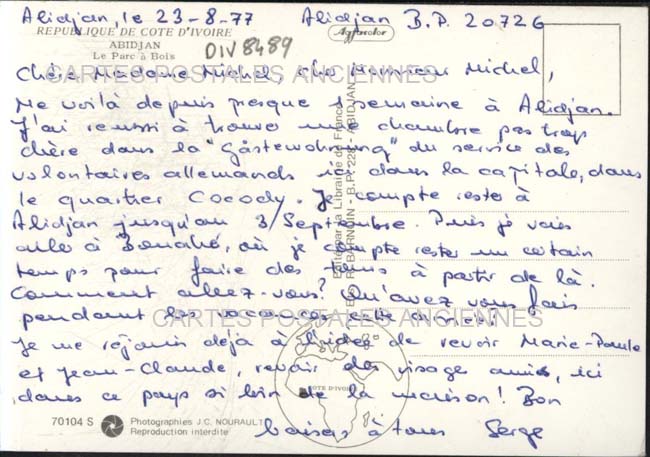 Abidjan, le 23-8-77 Abidjan B.P. 20726
REPUBLIQUE DE COTE D'IVOIRE
ABIDJAN
Le Parc à Bois
DIV8489
Agfacolor
Chère Madame Michel, cher Monsieur Michel,
CARTES POSTALES ANCIENNES
Me voilà depuis presque 1 semaine à Abidjan.
J'ai reussi à trouver une chambre pas trop
chère dans la "Gästewohnung" du service des
volontaires allemands ici dans la capitale, dans
le quartier Cocody. Je compte rester à
Abidjan jusqu'au 3/Septembre. Puis je vais
aller à Bouaké, où je compte rester un certain
temps pour faire des tours à partir de là.
Comment allez-vous? Qu'avez vous fais
pendant les vacances cette année?
CARTES POSTALES ANCIENNES
Je me réjouis déjà à l'idée de revoir Marie-Paule
et Jean-Claude, revoir des visages amis, ici
dans ce pays si loin de la maison! Bon
baisers à tous Serge
Editée par La Librairie de France
R. BARNOIN - B.P. 228 - ABIDJAN
COTE D'IVOIRE
70104 S
Photographies J.C. NOURAULT
Reproduction interdite